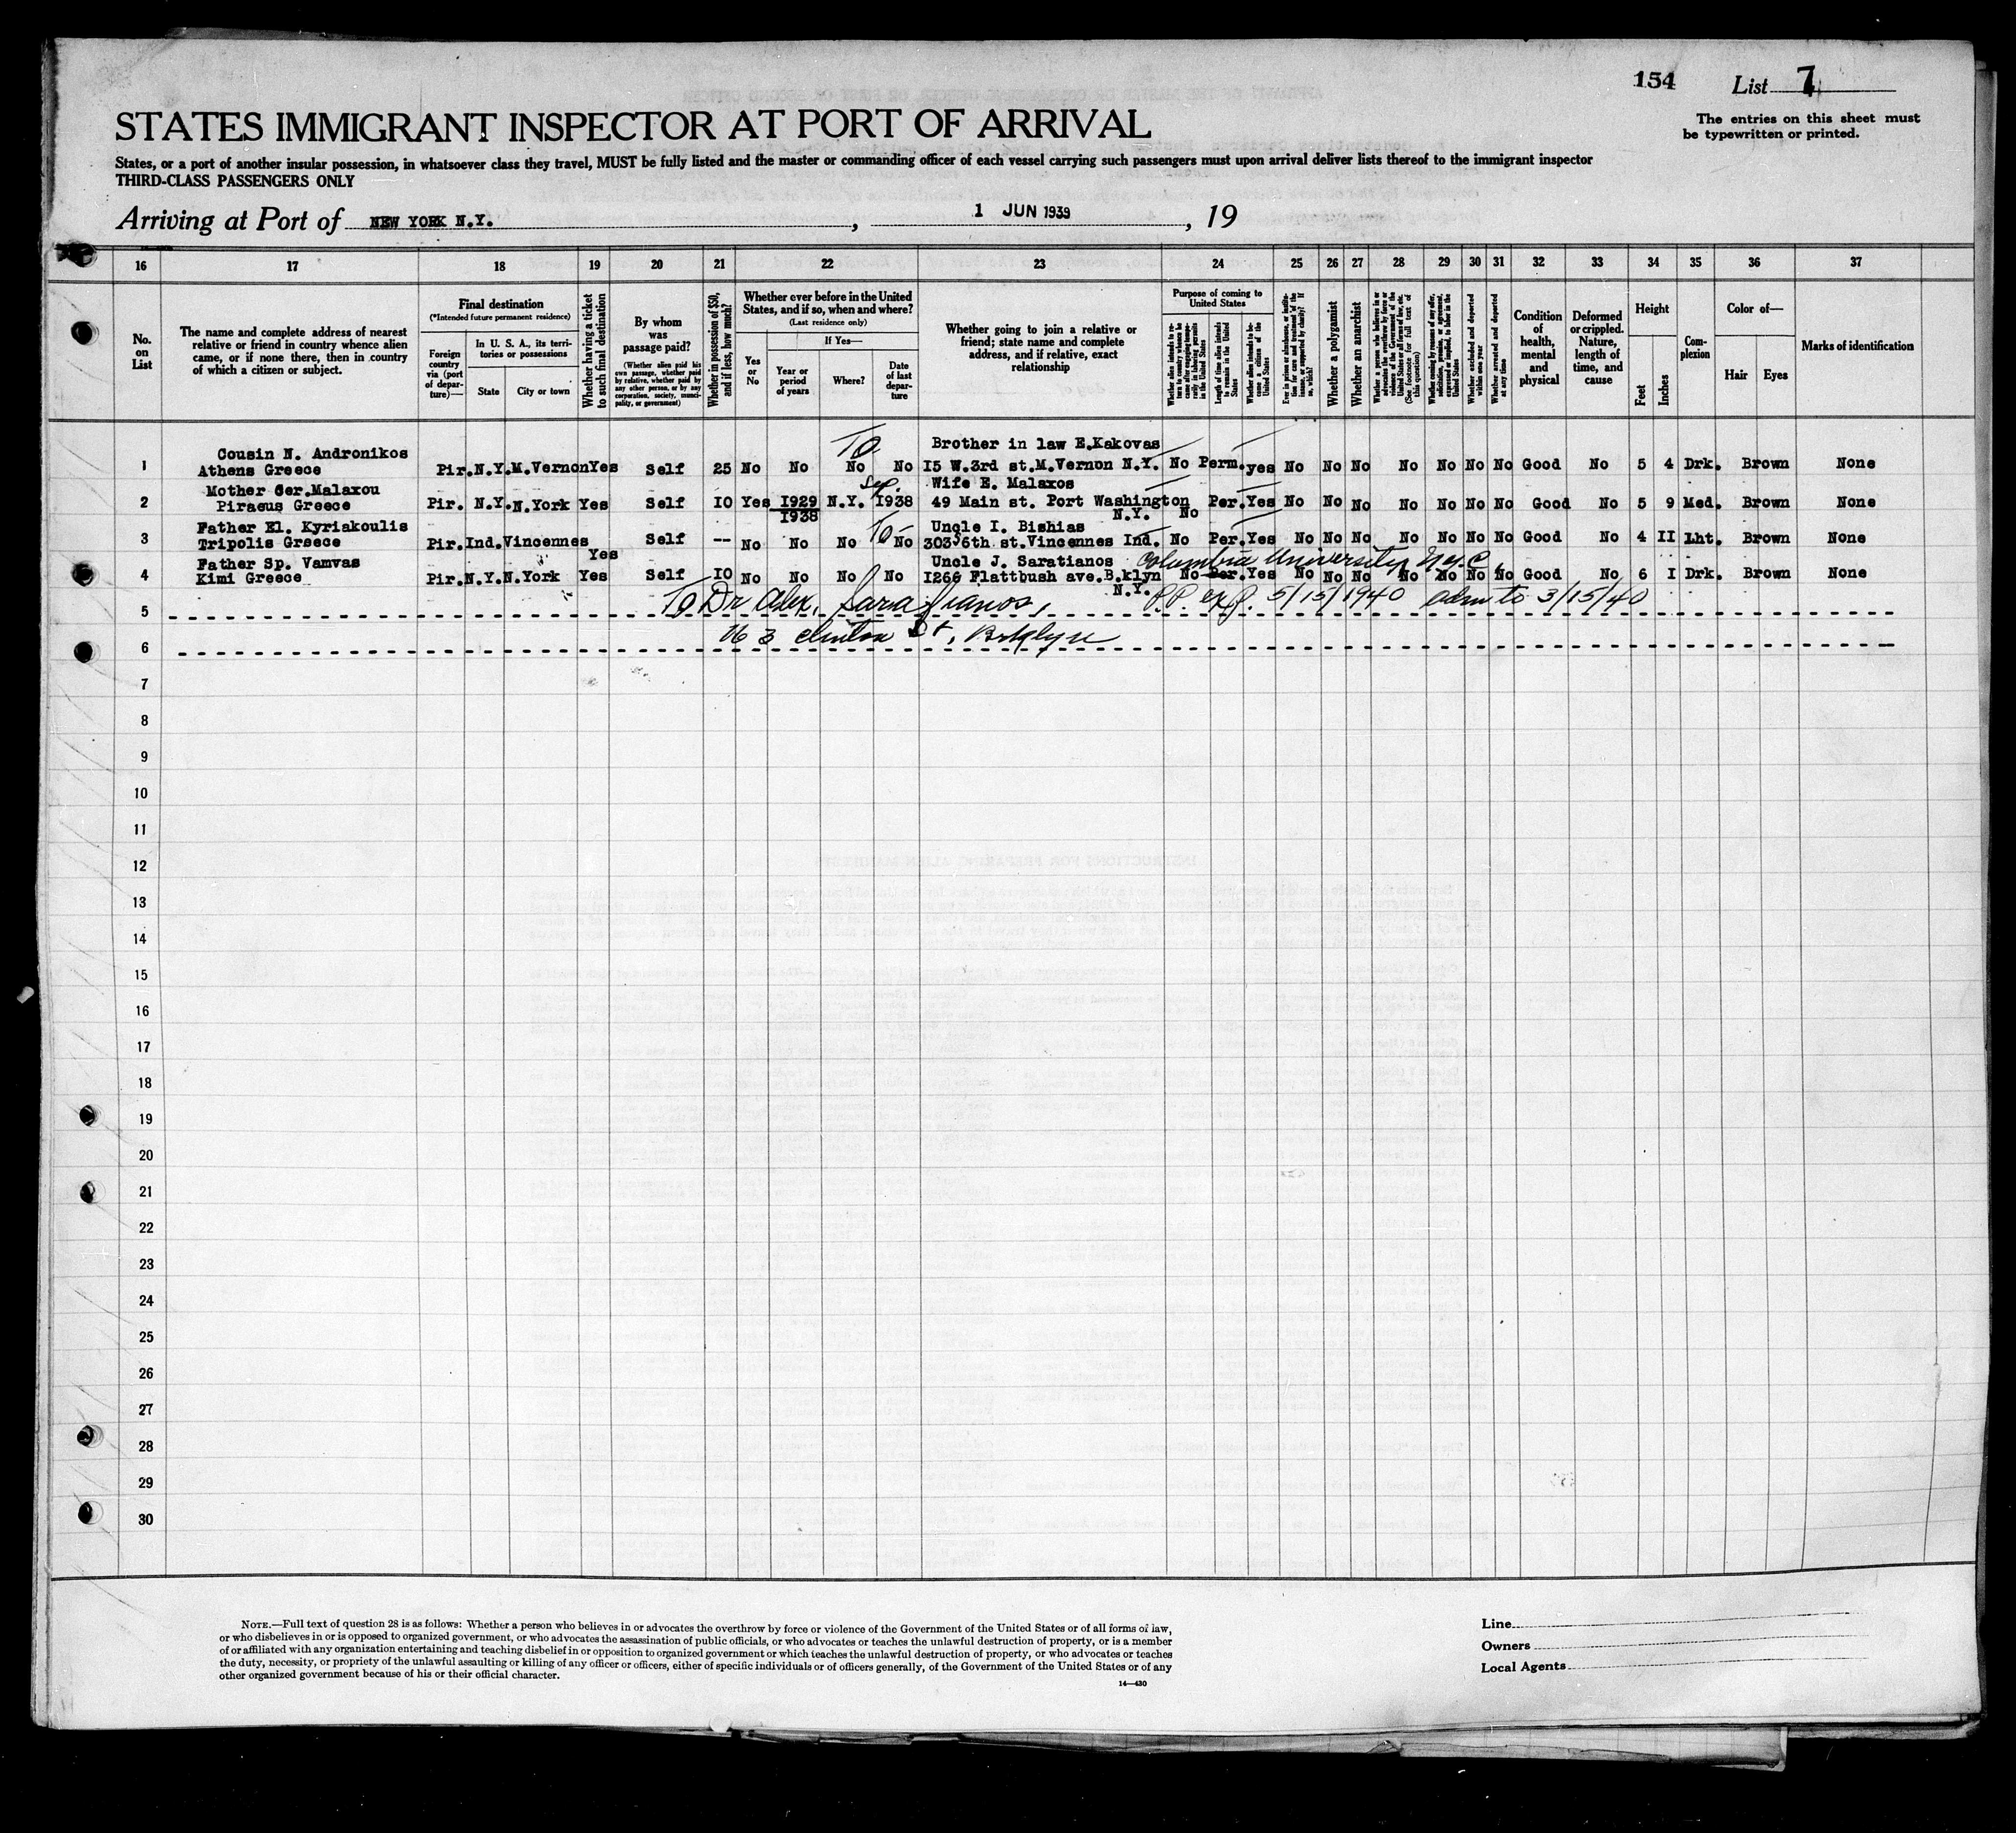 154 List 7
STATES IMMIGRANT INSPECTOR AT PORT OF ARRIVAL
The entries on this sheet must
be typewritten or printed.
States, or a port of another insular possession, in whatsoever class they travel, MUST be fully listed and the master or commanding officer of each vessel carrying such passengers must upon arrival deliver lists thereof to the immigrant inspector
THIRD-CLASS PASSENGERS ONLY
Arriving at Port of NEW YORK N.Y. , 1 JUN 1939 , 19
16 17 18 19 20 21 22 23 24 25 26 27 28 29 30 31 32 33 34 35 36 37
No. on List
The name and complete address of nearest relative or friend in country whence alien came, or if none there, then in country of which a citizen or subject.
Final destination
(*Intended future permanent residence)
Foreign country via (port of departure)—
In U. S. A., its territories or possessions
State
City or town
Whether having a ticket to such final destination
By whom was passage paid?
(Whether alien paid his own passage, whether paid by relative, whether paid by any other person, or by any corporation, society, municipality, or government)
Whether in possession of $50, and if less, how much?
Whether ever before in the United States, and if so, when and where?
(Last residence only)
Yes or No
If Yes—
Year or period of years
Where?
Date of last departure
Whether going to join a relative or friend; state name and complete address, and if relative, exact relationship
Purpose of coming to United States
Length of time alien intends to remain in the United States
Whether alien intends to become a citizen of the United States
Whether a polygamist
Whether an anarchist
(See footnote for full text of this question)
Whether excluded and deported within one year
Whether arrested and deported at any time
Condition of health, mental and physical
Deformed or crippled. Nature, length of time, and cause
Height
Feet
Inches
Complexion
Color of—
Hair
Eyes
Marks of identification
To
Cousin N. Andronikos Brother in law E.Kakovas
1 Athens Greece Pir. N.Y. M.Vernon Yes Self 25 No No No No 15 W.3rd st.M.Vernon N.Y. No Perm. yes No No No No No No No Good No 5 4 Drk. Brown None
Mother Ger.Malaxou Sep. Wife E. Malaxos
2 Piraeus Greece Pir. N.Y. N.York Yes Self 10 Yes 1929 N.Y. 1938 49 Main st. Port Washington Per. Yes No No No No No No No Good No 5 9 Med. Brown None
1938 N.Y. No
Father El. Kyriakoulis To Uncle I. Bishias
3 Tripolis Greece Pir. Ind. Vincennes Self -- No No No No 303,6th st.Vincennes Ind. No Per. Yes No No No No No No No Good No 4 II Lht. Brown None
Yes
Father Sp. Vamvas Uncle J. Saratianos Columbia University N.Y.C.
4 Kimi Greece Pir. N.Y. N.York Yes Self 10 No No No No 1266 Flattbush ave.B.klyn No Per. Yes No No No No No No No Good No 6 I Drk. Brown None
N.Y.
5 To Dr Alex. Sarafianos, P.P. exp. 5/15/1940 adm to 3/15/40
6 Clinton St, Brklyn
7
8
9
10
11
12
13
14
15
16
17
18
19
20
21
22
23
24
25
26
27
28
29
30
NOTE.—Full text of question 28 is as follows: Whether a person who believes in or advocates the overthrow by force or violence of the Government of the United States or of all forms of law,
or who disbelieves in or is opposed to organized government, or who advocates the assassination of public officials, or who advocates or teaches the unlawful destruction of property, or is a member
of or affiliated with any organization entertaining and teaching disbelief in or opposition to organized government or which teaches the unlawful destruction of property, or who advocates or teaches
the duty, necessity, or propriety of the unlawful assaulting or killing of any officer or officers, either of specific individuals or of officers generally, of the Government of the United States or of any
other organized government because of his or their official character.
14—430
Line
Owners
Local Agents